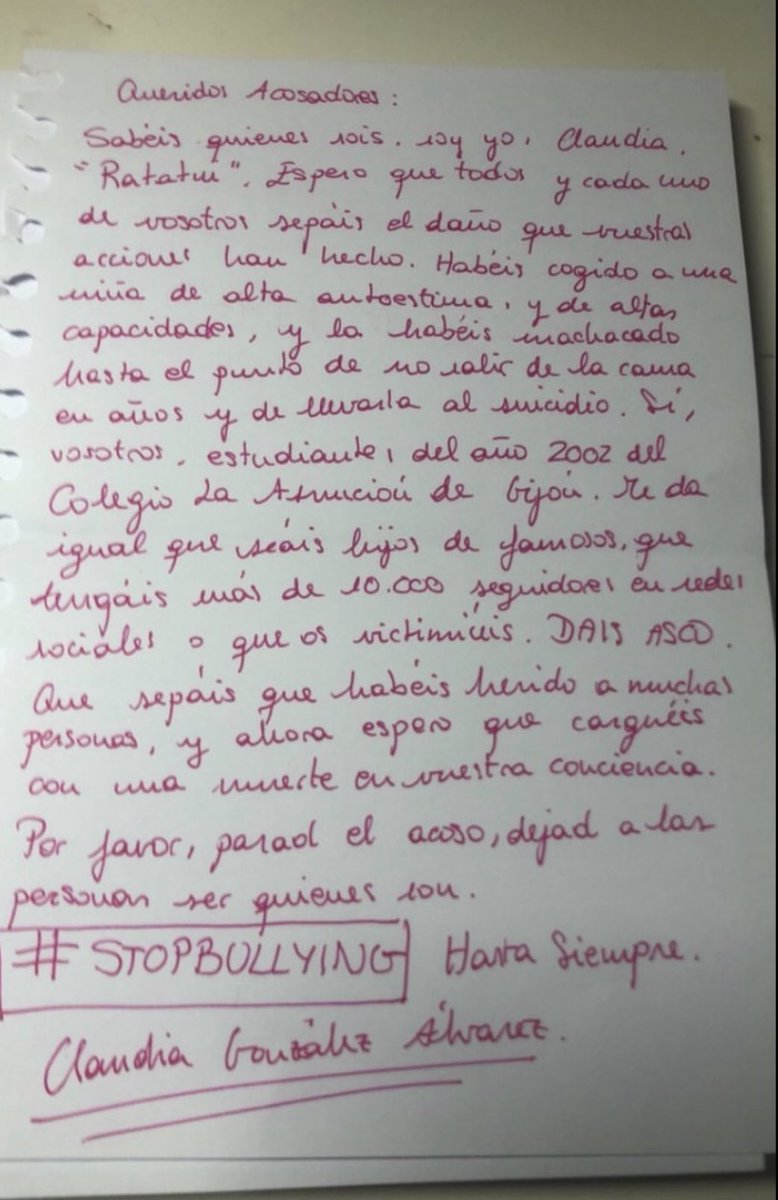 Queridos Acosadores:
Sabéis quienes sois. soy yo, Claudia.
"Ratatui". Espero que todos y cada uno
de vosotros sepáis el daño que vuestras
acciones han hecho. Habéis cogido a una
niña de alta autoestima, y de altas
capacidades, y la habéis machacado
hasta el punto de no salir de la cama
en años y de llevarla al suicidio. Sí,
vosotros, estudiantes del año 2002 del
Colegio La Asunción de Gijón. Me da
igual que seáis hijos de famosos, que
tengáis más de 10.000 seguidores en redes
sociales o que os victimicéis. DAIS ASCO.
Que sepáis que habéis herido a muchas
personas, y ahora espero que carguéis
con una muerte en vuestra conciencia.
Por favor, parad el acoso, dejad a las
personas ser quienes son.
#STOPBULLYING Hasta Siempre.
Claudia González Álvarez.